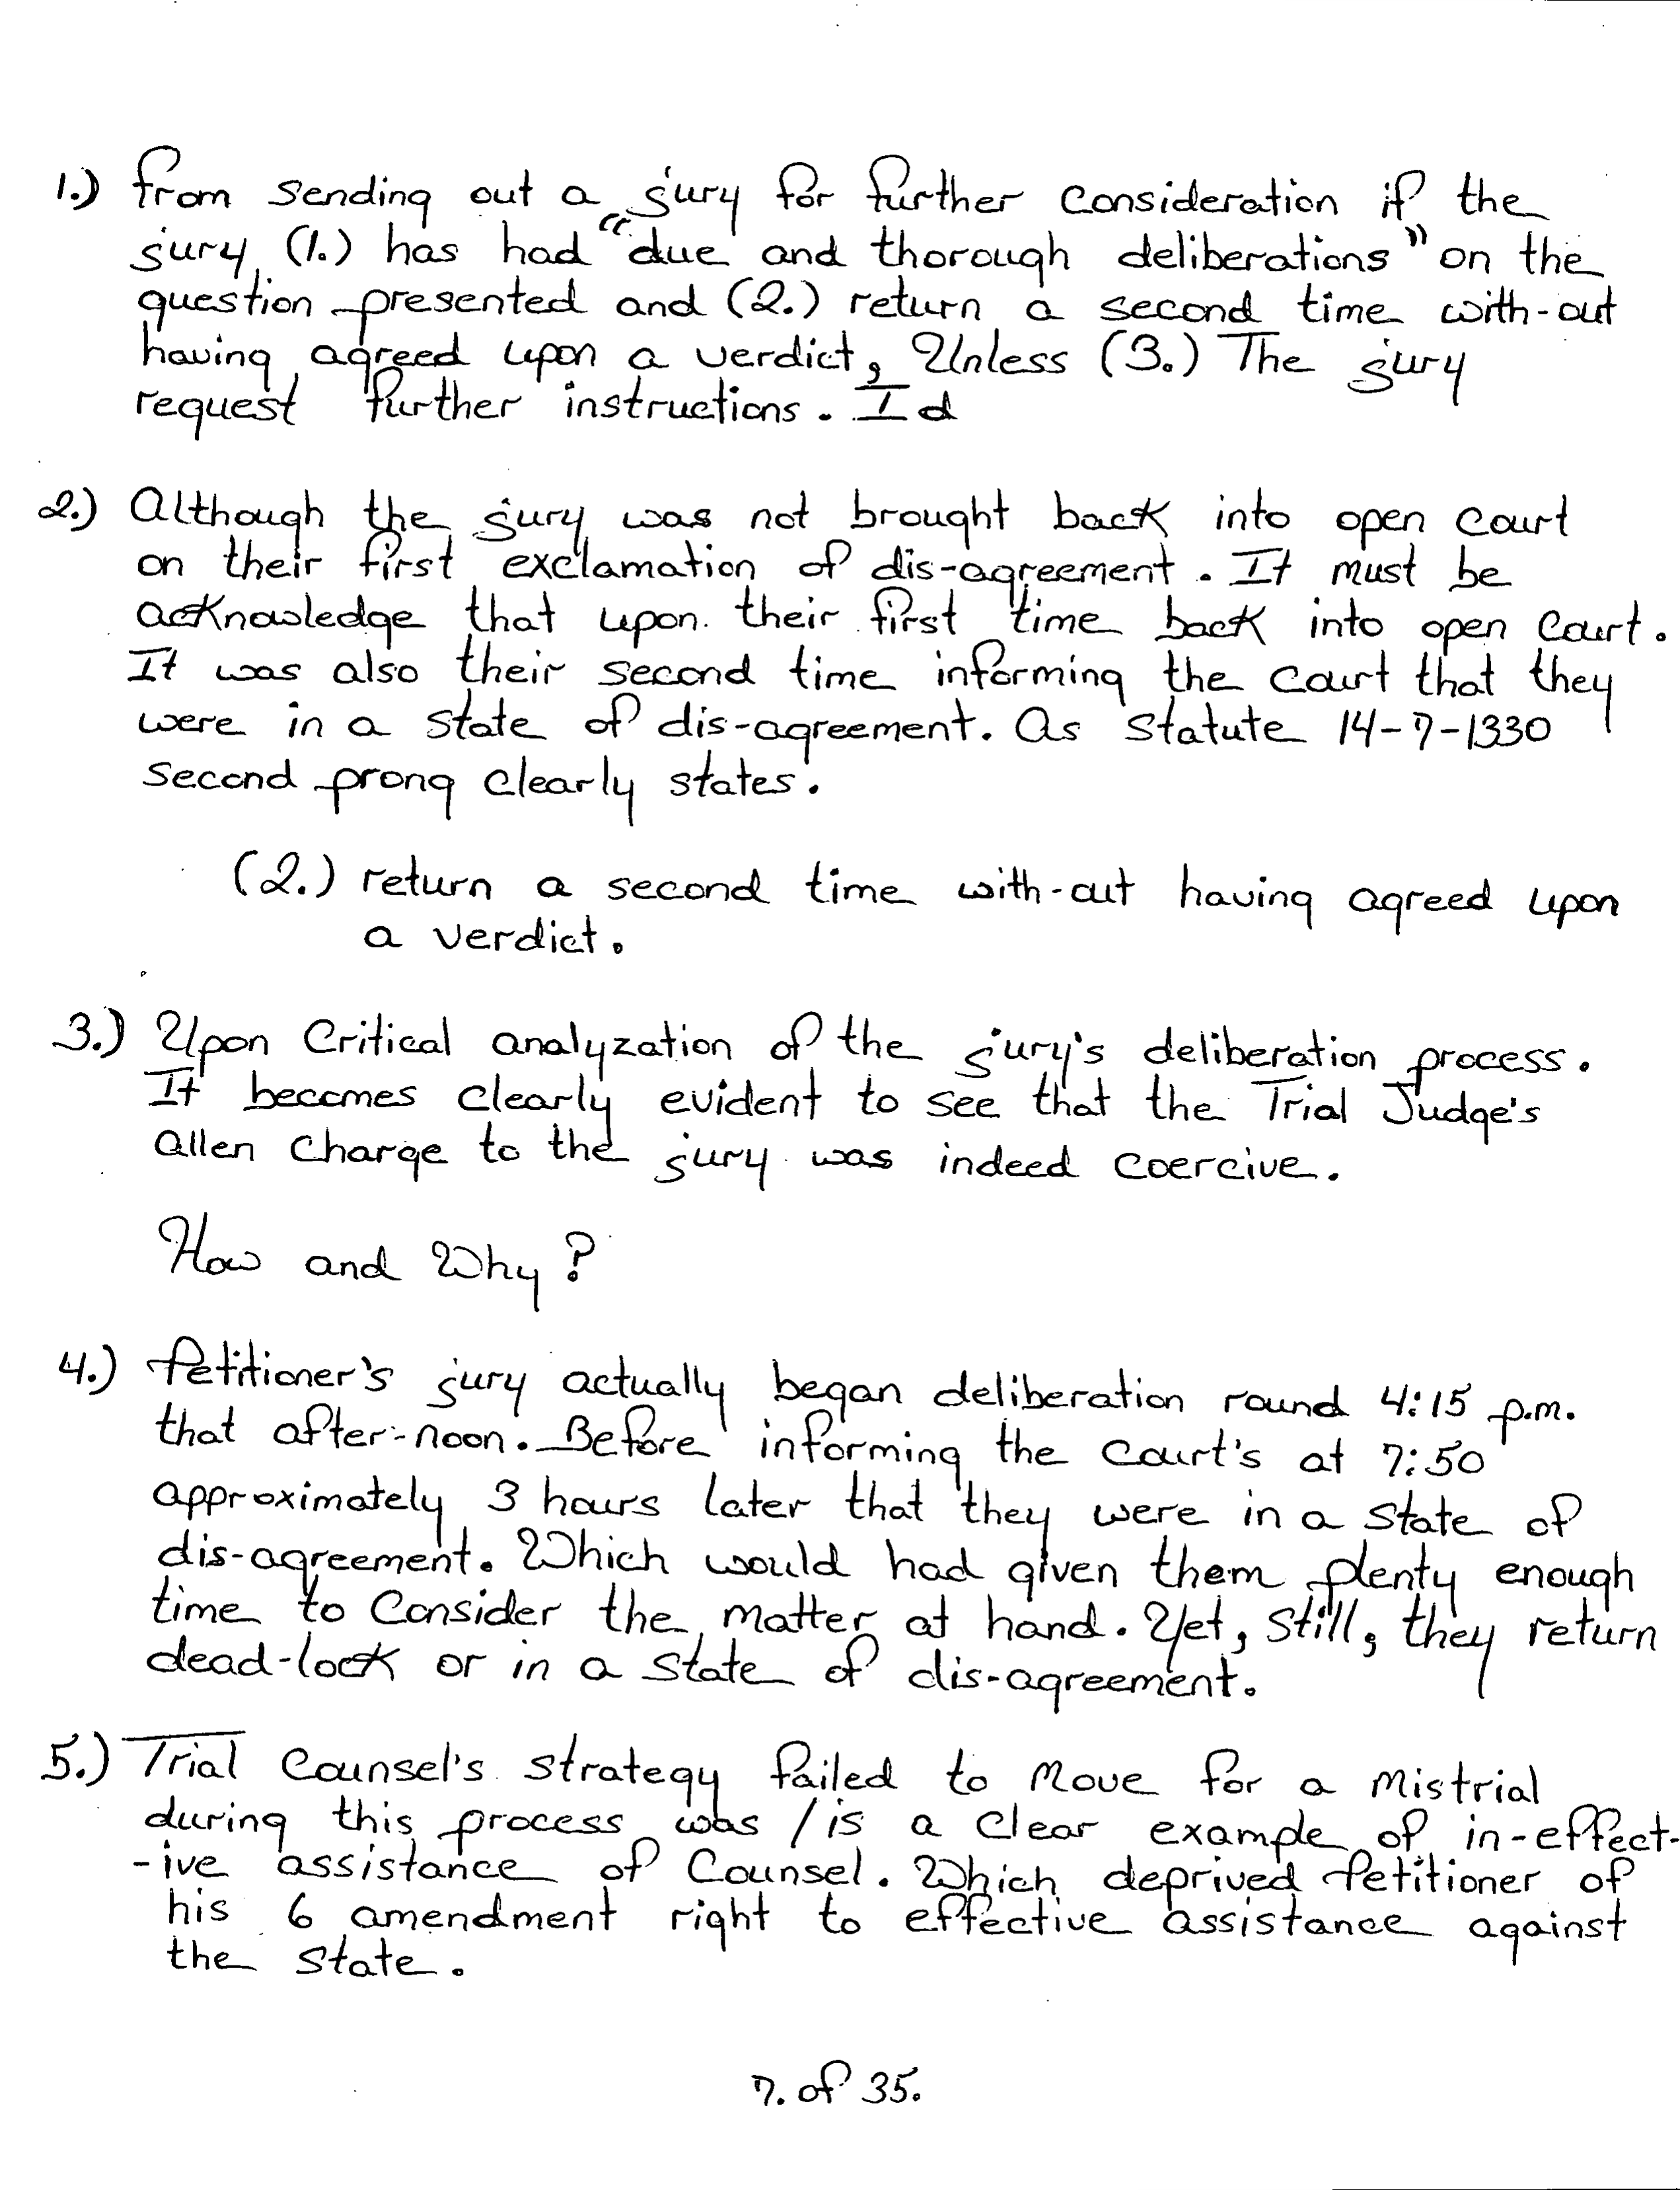 1.) from sending out a jury for further consideration if the
jury, (1.) has had "due and thorough deliberations" on the
question presented and (2.) return a second time with-out
having agreed upon a verdict, Unless (3.) The jury
request further instructions. Id
2.) Although the jury was not brought back into open court
on their first exclamation of dis-agreement. It must be
acknowledge that upon their first time back into open Court.
It was also their second time informing the Court that they
were in a state of dis-agreement. As Statute 14-7-1330
Second prong Clearly states.
(2.) return a second time with-out having agreed upon
a verdict.
3.) Upon Critical analyzation of the jury's deliberation process.
It becomes Clearly evident to see that the Trial Judge's
Allen Charge to the jury was indeed coercive.
How and Why?
4.) Petitioner's jury actually began deliberation round 4:15 p.m.
that after-noon. Before informing the Court's at 7:50
approximately 3 hours later that they were in a State of
dis-agreement. Which would had given them plenty enough
time to Consider the matter at hand. Yet, still, they return
dead-lock or in a State of dis-agreement.
5.) Trial Counsel's strategy failed to Move for a Mistrial
during this process was / is a Clear example of in-effect-
-ive assistance of Counsel. Which deprived Petitioner of
his 6 amendment right to effective assistance against
the State.
7. of 35.